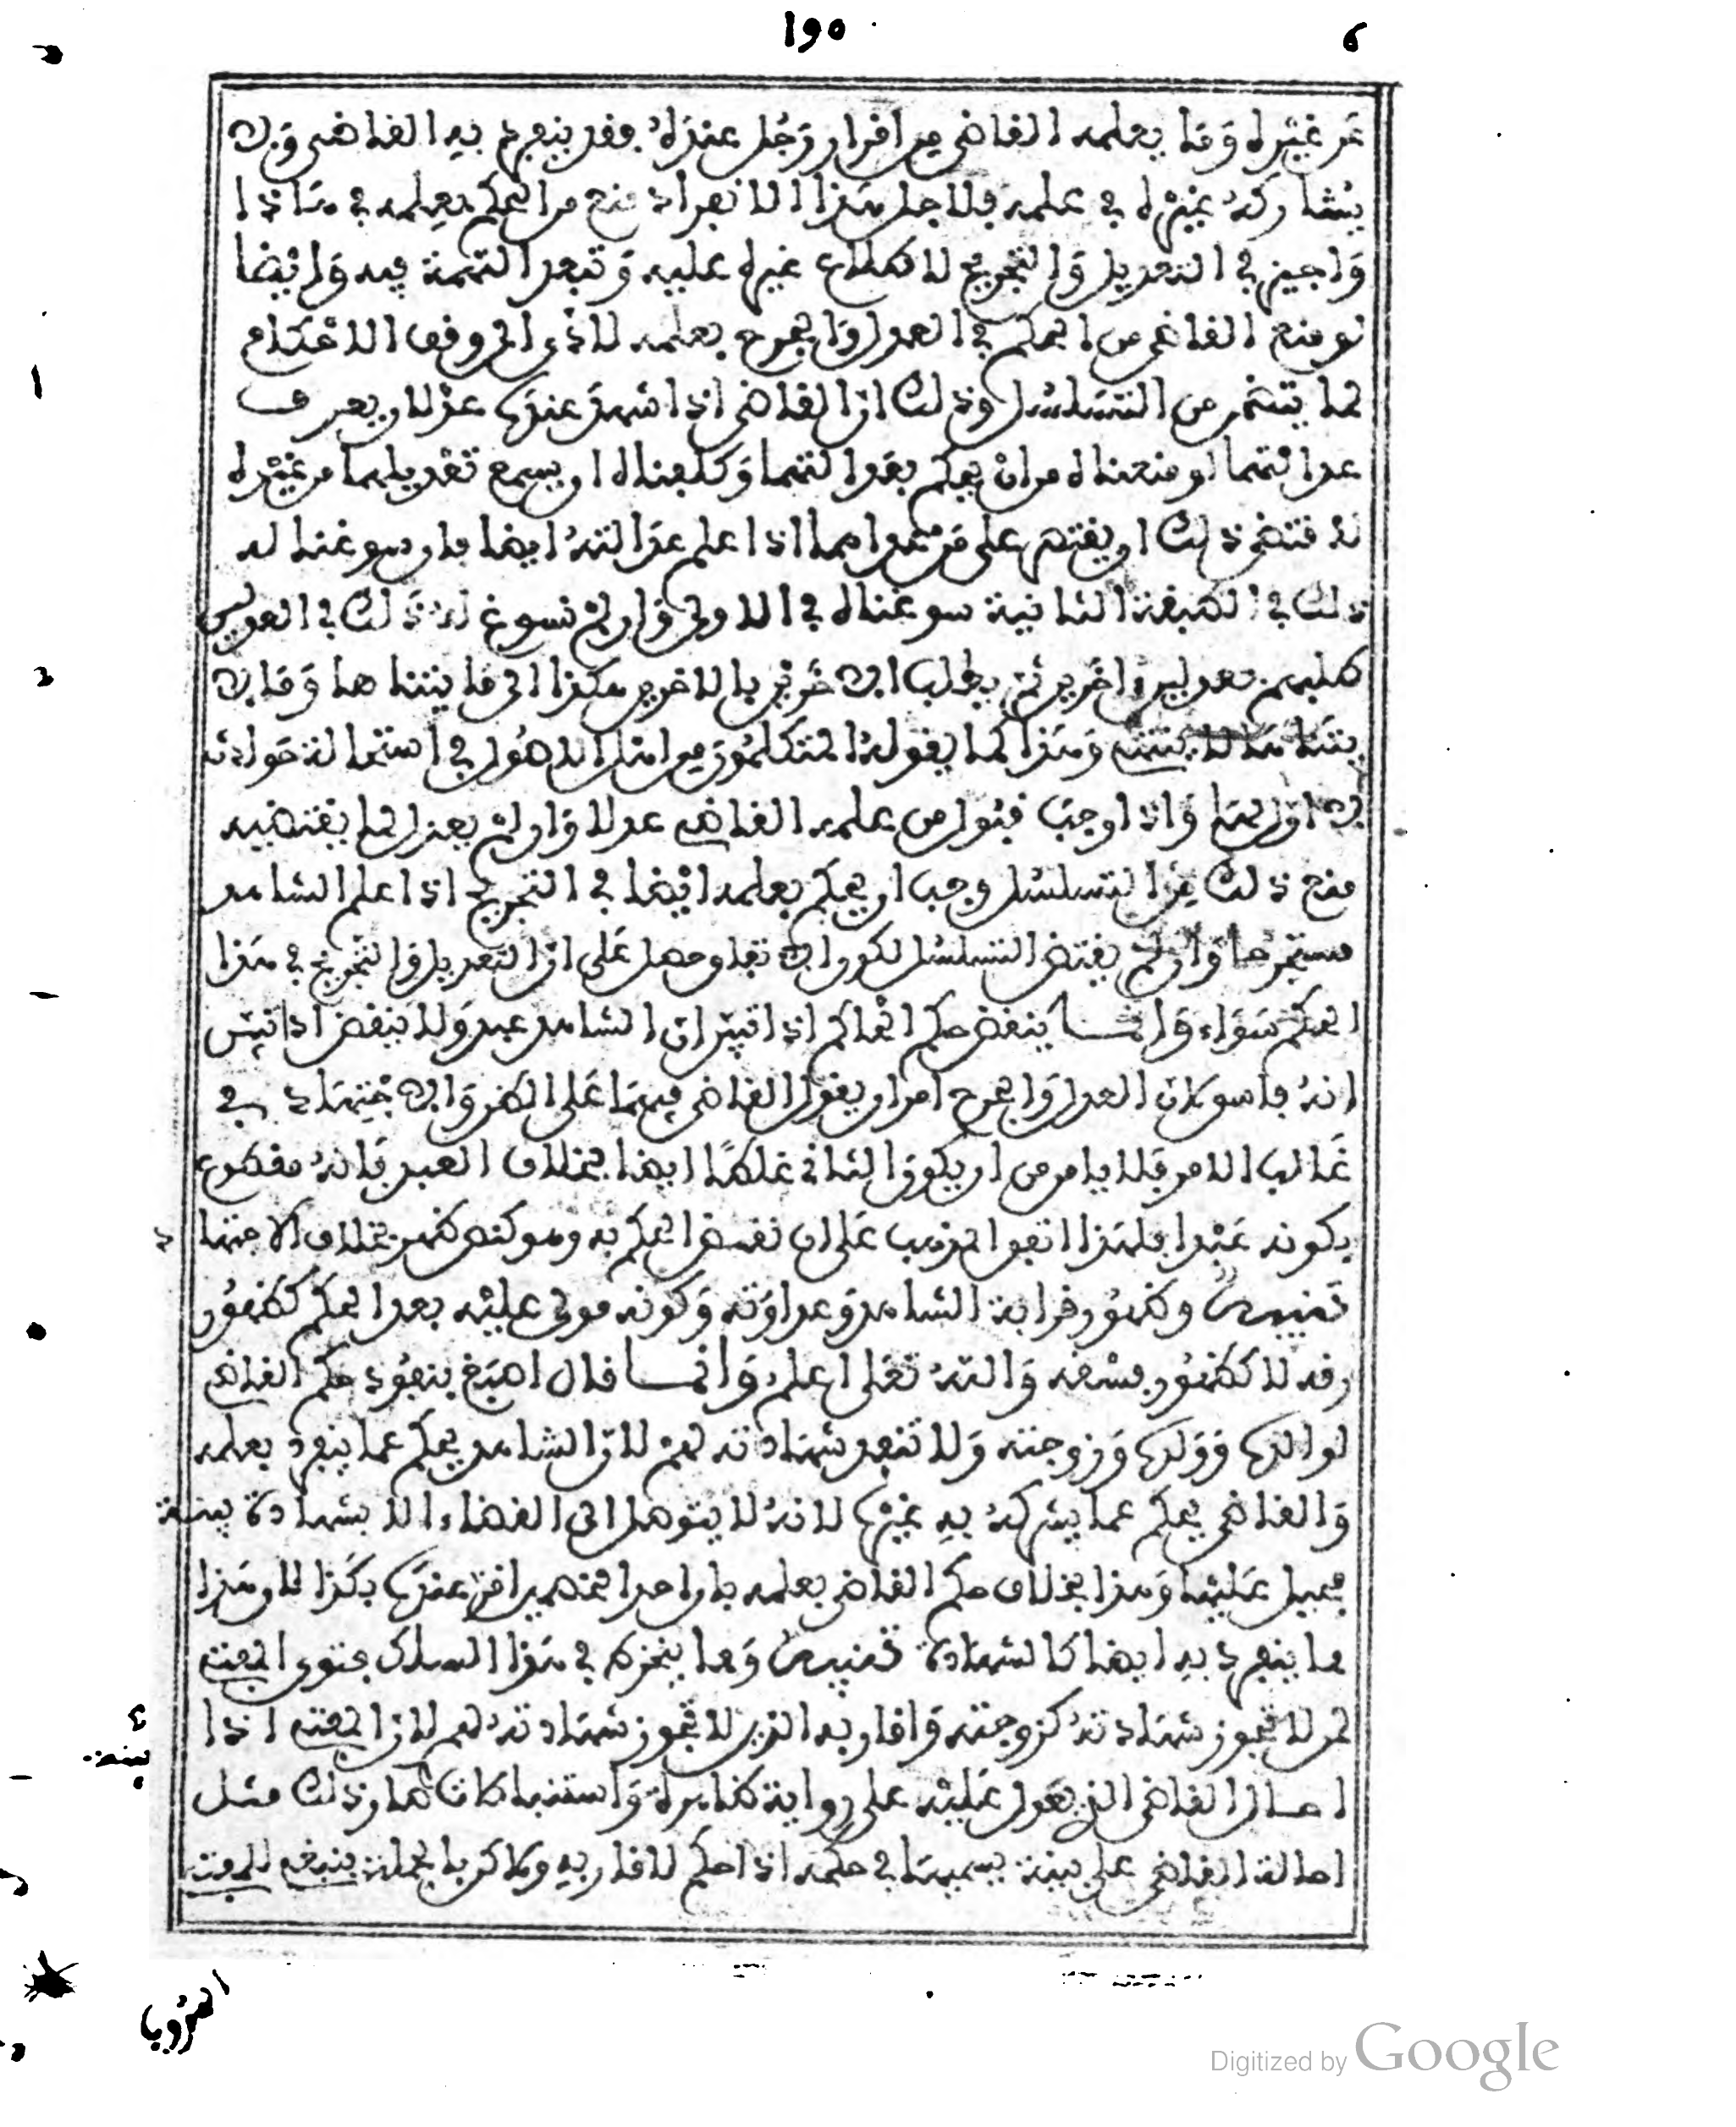 195
6
عن غيره وما يعلمه القاضي من اقرار رجل عنده فقد ينفرد به القاضي ولا
يشاركه غيره في علمه فلاجل هذا الانفراد منع من الحكم بعلمه في هاذا
واجيز في التعديل والتجريح لاطلاع غيره عليه وتبعد التهمة فيه وايضا
لو منع القاضي من الحكم في العدل والجرح بعلمه لادى الى وقف الاحكام
لما يتضمن من التسلسل وذلك ان القاضي اذا شهد عنده عدلان يعرف
عدالتهما لو منعناه من ان يحكم بعدالتهما وكلفناه ان يسمع تعديلهما من غيره
لاقتضى ذلك ان يقتصر على من عدلهما اذا علم عدالته ايضا فان سوغنا له
ذلك في الطبقة الثانية سوغناه في الاولى وان لم نسوغ له ذلك في العدلين
طلبهم بعدلين اخرين ثم يطلب الاخرين بالاخرين هكذا الى ما يتناهى وما لا
يتناهى لا يثبت وهذا كما يقوله المتكلمون من اهل الاصول في استحالة حوادث
لا اول لها واذا وجب قبول من علمه القاضي عدلا وان لم يعدل لما يقتضيه
منع ذلك من التسلسل وجب ان يحكم بعلمه ايضا في التجريح اذا علم الشاهد
مستجرحا وان لم يقتض التسلسل لكون الاتفاق حصل على ان التعديل والتجريح في هذا
الحكم سواء وانما ينقض حكم الحاكم اذا تبين ان الشاهد عبد ولا ينقض اذا تبين
انه فاسق لان العدل والجرح امر يعول القاضي فيهما على الظن والاجتهاد في
غالب الامر فلا يامن من ان يكون الثاني غلطا ايضا بخلاف العبد فانه مقطوع
بكونه عبدا فلهذا اتفق المذهب على ان نقض الحكم به وهو كنص ظهر بخلاف الاجتها
د
تنبيه وظهور قرابة الشاهد وعداوته وكونه مولى عليه بعد الحكم كظهور
رقه لا كظهور فسقه والله تعلى اعلم وانما قال اصبغ بنفوذ حكم القاضي
لوالده وولده وزوجته ولا تنفذ شهادته لهم لان الشاهد يحكم عما ينفرد بعلمه
والقاضي يحكم عما يشركه فيه غيره لانه لا يتوصل الى القضاء الا بشهادة بينة
فيحيل عليها وهذا بخلاف حكم القاضي بعلمه بان احد الخصمين اقر عنده بكذا لان هذا
مما ينفرد به ايضا كالشهادة تنبيه ومما ينخرط في هذا السلك فتوى المفتي
لمن لا تجوز شهادته كزوجته واقاربه الذين لا تجوز شهادته لهم لان المفتي اذا
احال القاضي الذي يعول عليه على رواية ظاهرة واستنباطات صار ذلك مثل
احالة القاضي على بينة يسميها في حكمه اذا حكم لاقاربه ولاكن بالجملة ينبغي للمفتي
بينة
التروي
Digitized by Google